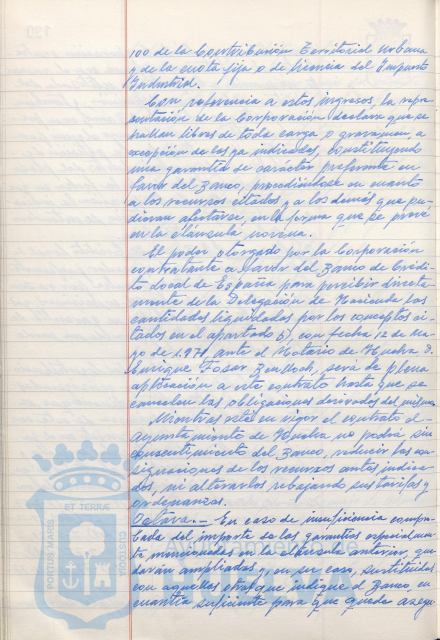 100 de la Contribución Territorial Urbana
y de la cuota fija o de licencia del Impuesto
Industrial.
Con referencia a estos ingresos, la repre-
sentación de la Corporación declara que se
hallan libres de toda carga o gravamen, a
excepción de las ya indicadas, constituyendo
una garantía de carácter preferente en
favor del Banco, procediéndose en cuanto
a los recursos citados y a los demás que pu-
dieran afectarse, en la forma que se prevé
en la cláusula novena.
El poder otorgado por la Corporación
contratante a favor del Banco de Crédi-
to Local de España para percibir directa-
mente de la Delegación de Hacienda las
cantidades liquidadas por los conceptos ci-
tados en el apartado b), con fecha 12 de Ma-
yo de 1.971, ante el Notario de Huelva D.
Enrique, será de plena
aplicación a este contrato hasta que se
cancelen las obligaciones derivadas del mismo.
Mientras esté en vigor el contrato el
Ayuntamiento de Huelva no podrá, sin
consentimiento del Banco, reducir las con-
signaciones de los recursos antes indica-
dos, ni alterarlos rebajando sus tarifas y
ordenanzas.
Octava.— En caso de insuficiencia compro-
bada del importe de las garantías especialmen-
te mencionadas en la cláusula anterior, que-
darán ampliadas y, en su caso, sustituidas
con aquellas otras que indique el Banco, en
cuantía suficiente para que quede asegu-
PORTUS MARIS
ET TERRAE
CUSTODIA